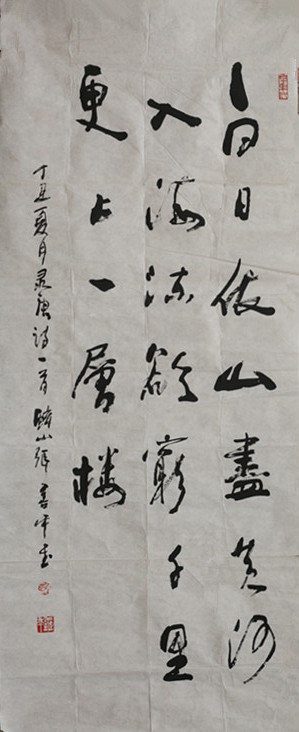 白日依山盡黄河
入海流欲窮千里
更上一層楼
丁丑夏月录唐诗一首